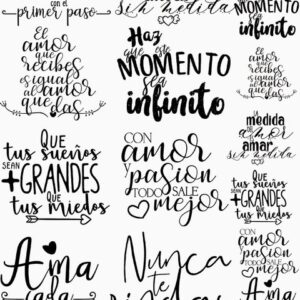 con el
primer paso
El
amor
que
recibes
es igual
al amor
que
das
sin medida
Haz
que este
MOMENTO
sea
infinito
El
amor
que
recibes
es igual
al amor
que
das
medida
amor
amar
sin medida
QUE
tus sueños
SEAN
+GRANDES
QUE
tus miedos
CON
amor
y
pasión
TODO SALE
mejor
QUE
tus sueños
SEAN
+GRANDES
QUE
tus miedos
Ama
Nunca
te
CON
amor
y
pasión
TODO SALE
mejor